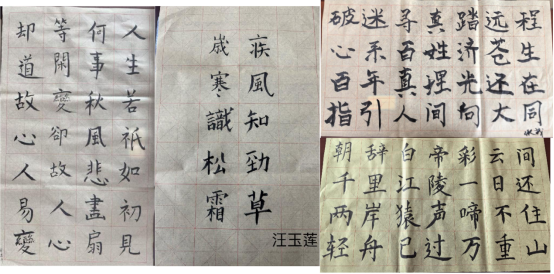 人生若祇如初見
何事秋風悲畫扇
等閑變卻故人心
却道故心人易變
疾風知勁草
歲寒識松霜
汪玉莲
破迷寻真踏远程
心系百姓济苍生
百年真捏光还在
指引人间向大同
朝辞白帝彩云间
千里江陵一日还
两岸猿声啼不住
轻舟已过万重山